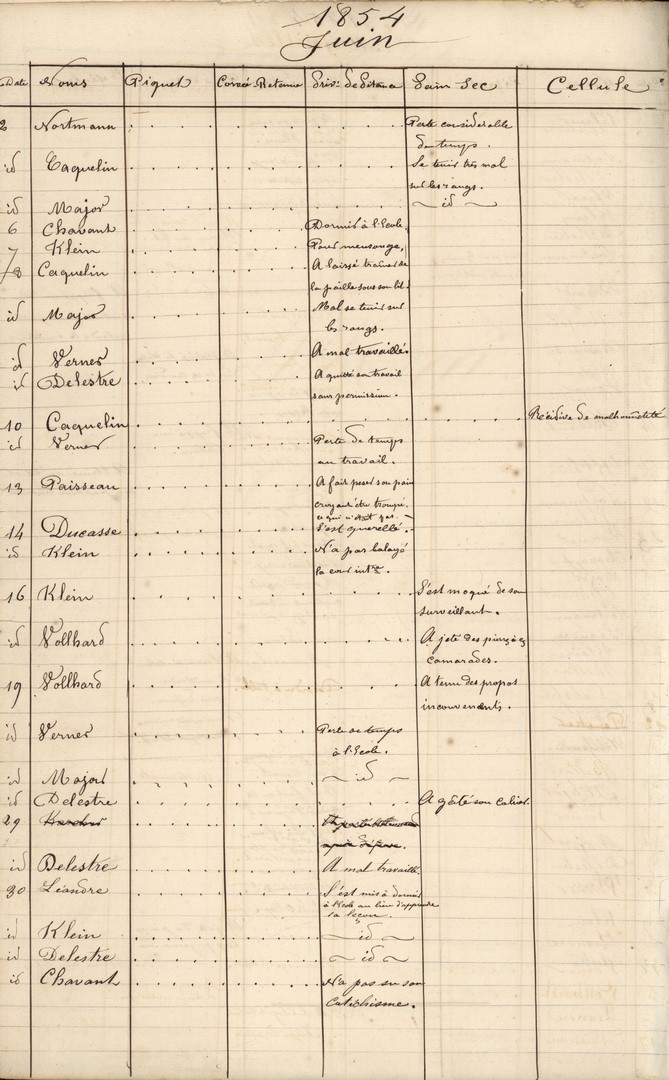 1854
Juin
Date Noms Piquet Corvée Retenue Priv: de Gitana Pain Sec Cellule
2 Nortmann Perte considerable
de temps.
id Caquelin Se tenir très mal
sur les rangs.
id Major id
6 Chavant Dormir à l'Ecole.
7 Klein Pour mensonge,
8 Caquelin A laissé trainer de
la paille sous son lit.
id Major Mal se tenir sur
les rangs.
id Verner A mal travaillé
id Delestre A quitté son travail
sans permission.
10 Caquelin Récidive de malhonnêteté
id Verner Perte de temps
au travail.
13 Paisseau A fait peser son pain
croyant être trompé.
ce qui n'était pas.
14 Ducasse S'est querellé.
id Klein N'a pas balayé
la cour intre.
16 Klein S'est moqué de son
surveillant.
id Vollhard A jeté des pierres à ses
camarades.
19 Vollhard A tenu des propos
inconvenents.
id Verner Perte de temps
à l'Ecole.
id Major id
id Delestre A gâté son calicot.
29
id Delestre A mal travaillé.
30 Léandre S'est mis à dormir
à l'Ecole au lieu d'apprendre
sa leçon.
id Klein id
id Delestre id
id Chavant N'a pas su son
catéchisme.